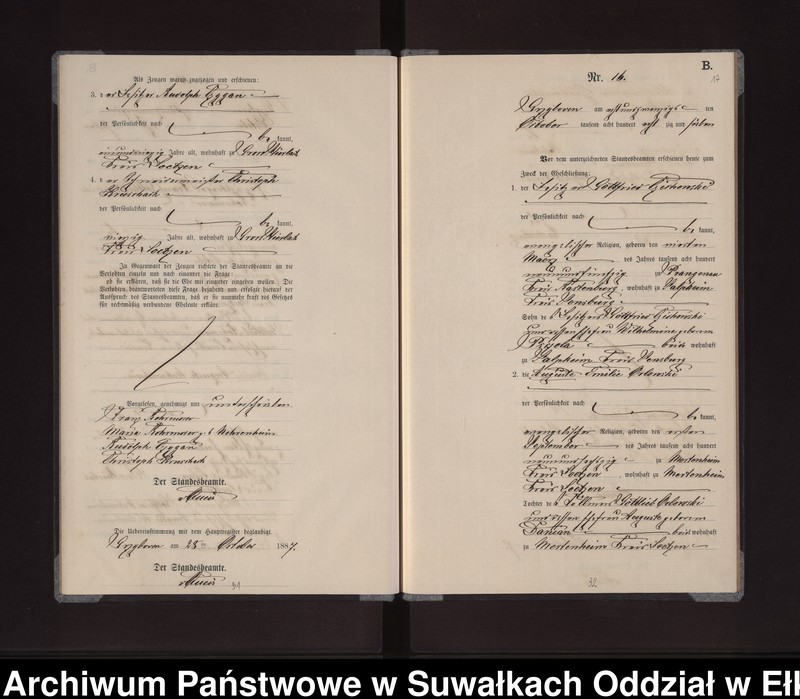 Als Zeugen waren zugezogen und erschienen:
3. der Besitzer Rudolph Eggan
der Persönlichkeit nach
be kannt,
Jahre alt, wohnhaft zu Gross
Kreis Loetzen
4. der Schneidermeister Christoph
der Persönlichkeit nach
be kannt,
vierzig Jahre alt, wohnhaft zu Gross
Kreis Loetzen
In Gegenwart der Zeugen richtete der Standesbeamte an die
Verlobten einzeln und nach einander die Frage:
ob sie erklären, daß sie die Ehe mit einander eingehen wollen. Die
Verlobten beantworteten diese Frage bejahend und erfolgte hierauf der
Ausspruch des Standesbeamten, daß er sie nunmehr kraft des Gesetzes
für rechtmäßig verbundene Eheleute erkläre.
Vorgelesen, genehmigt und unterschrieben
Franz
Maria
Rudolph Eggan
Christoph
Der Standesbeamte.
Die Uebereinstimmung mit dem Hauptregister beglaubigt.
am 28ten October 1887.
Der Standesbeamte.
31
B.
17
Nr. 16.
am achtundzwanzigsten
October tausend acht hundert acht zig und sieben
Vor dem unterzeichneten Standesbeamten erschienen heute zum
Zweck der Eheschließung:
1. der Besitzer Gottfried
der Persönlichkeit nach
be kannt,
evangelischer Religion, geboren den vierten
Maerz des Jahres tausend acht hundert
neunundfünfzig zu Prangenau
Kreis Rastenburg, wohnhaft zu Salpkeim
Kreis Sensburg
Sohn des Besitzers Gottfried
und dessen Ehefrau Wilhelmine geborene
beide wohnhaft
zu Salpkeim Kreis Sensburg
2. die Auguste Emilie Orlowski
der Persönlichkeit nach
be kannt,
evangelischer Religion, geboren den ersten
September des Jahres tausend acht hundert
neunundsechszig zu Mertenheim
Kreis Loetzen, wohnhaft zu Mertenheim
Kreis Loetzen
Tochter des Gottlieb Orlowski
und dessen Ehefrau Auguste geborene
Danian beide wohnhaft
zu Mertenheim Kreis Loetzen
32
Archiwum Państwowe w Suwałkach Oddział w Eł